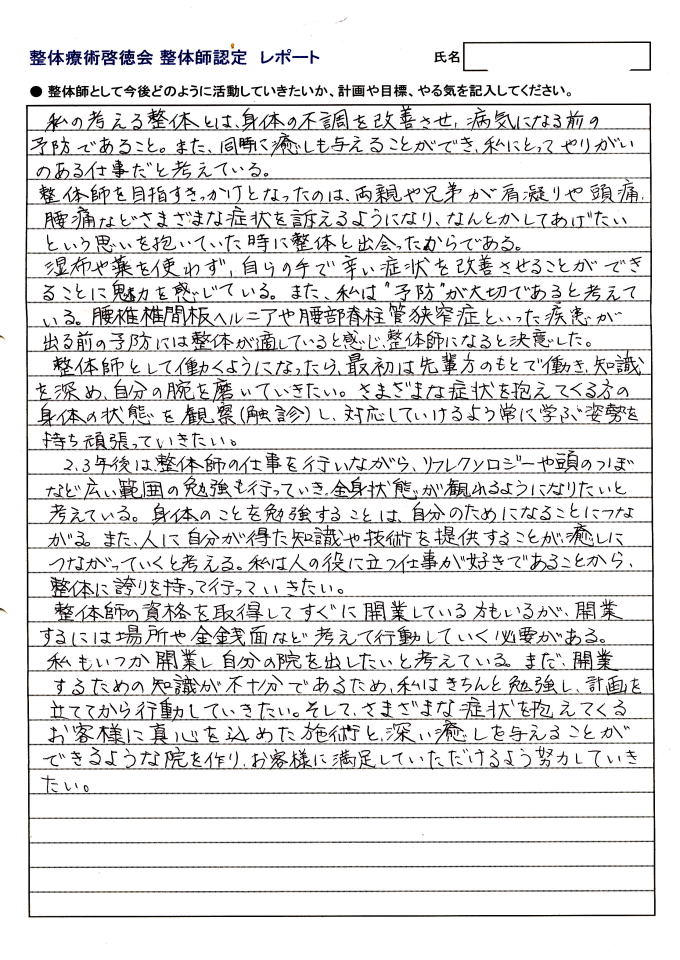 整体療術啓徳会 整体師認定 レポート 氏名
● 整体師として今後どのように活動していきたいか、計画や目標、やる気を記入してください。
私の考える整体とは、身体の不調を改善させ、病気になる前の
予防であること。また、同時に癒しも与えることができ、私にとってやりがい
のある仕事だと考えている。
整体師を目指すきっかけとなったのは、両親や兄弟が肩凝りや頭痛、
腰痛などさまざまな症状を訴えるようになり、なんとかしてあげたい
という思いを抱いていた時に整体と出会ったからである。
湿布や薬を使わず、自らの手で辛い症状を改善させることができ
ることに魅力を感じている。また、私は"予防"が大切であると考えて
いる。腰椎椎間板ヘルニアや腰部脊柱管狭窄症といった疾患が
出る前の予防には整体が適していると感じ、整体師になると決意した。
整体師として働くようになったら、最初は先輩方のもとで働き、知識
を深め、自分の腕を磨いていきたい。さまざまな症状を抱えてくる方の
身体の状態を観察(触診)し、対応していけるよう常に学ぶ姿勢を
持ち頑張っていきたい。
2.3年後は、整体師の仕事を行いながら、リフレクソロジーや頭のつぼ
など広い範囲の勉強も行っていき、全身状態が観れるようになりたいと
考えている。身体のことを勉強することは、自分のためになることにつな
がる。また、人に自分が得た知識や技術を提供することが、癒しに
つながっていくと考える。私は人の役に立つ仕事が好きであることから、
整体に誇りを持って行っていきたい。
整体師の資格を取得してすぐに開業している方もいるが、開業
するには場所や金銭面など考えて行動していく必要がある。
私もいつか開業し自分の院を出したいと考えている。まだ、開業
するための知識が不十分であるため、私はきちんと勉強し、計画を
立ててから行動していきたい。そして、さまざまな症状を抱えてくる
お客様に真心を込めた施術と、深い癒しを与えることが
できるような院を作り、お客様に満足していただけるよう努力していき
たい。